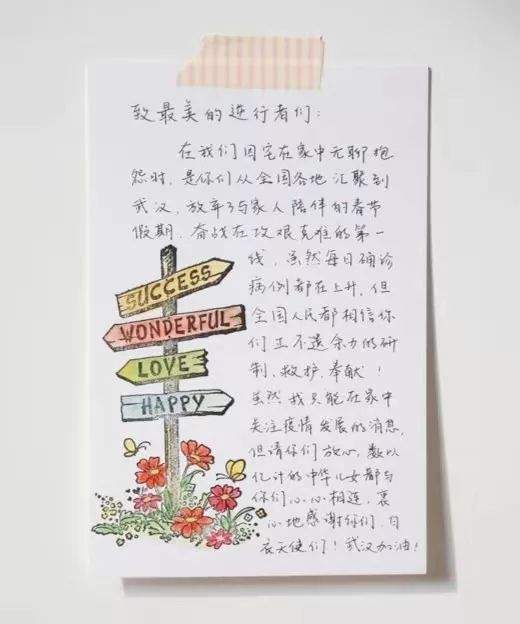 致最美的逆行者们：
在我们因宅在家中无聊抱
怨时，是你们从全国各地汇聚到
武汉，放弃了与家人陪伴的春节
假期，奋战在攻艰克难的第一
线，虽然每日确诊
病例都在上升，但
全国人民都相信你
们正不遗余力的研
制、救护、奉献！
虽然我只能在家中
关注疫情发展的消息，
但请你们放心，数以
亿计的中华儿女都与
你们心心相连，衷
心地感谢你们，白
衣天使们！武汉加油！
SUCCESS
WONDERFUL
LOVE
HAPPY